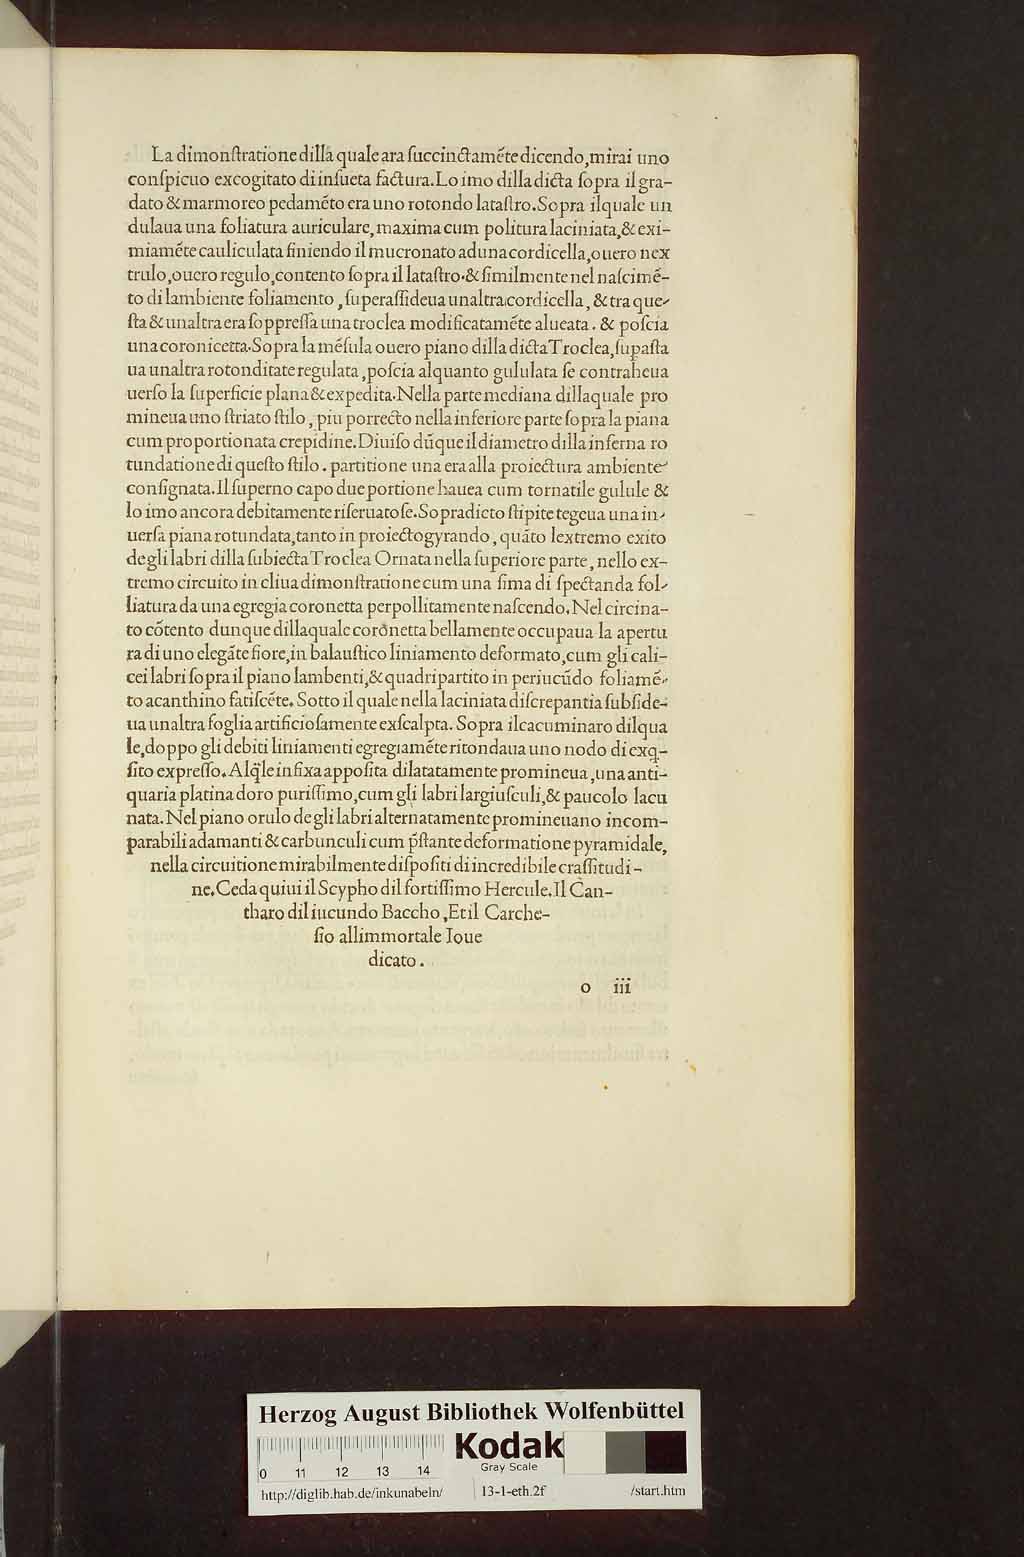 La dimonſtratione dilla quale ara ſuccinctamẽte dicendo, mirai uno
conſpicuo excogitato di inſueta factura. Lo imo dilla dicta ſopra il gra-
dato & marmoreo pedamẽto era uno rotondo lataſtro. Sopra ilquale un
dulaua una foliatura auriculare, maxima cum politura laciniata, & exi-
miamẽte cauliculata finiendo il mucronato ad una cordicella, ouero nex
trulo, ouero regulo, contento ſopra il lataſtro. & ſimilmente nel naſcimẽ-
to di lambiente foliamento, ſuperaſſideua unaltra cordicella, & tra que-
ſta & unaltra era ſoppreſſa una troclea modificatamẽte alueata. & poſcia
una coronicetta. Sopra la mẽſula ouero piano dilla dicta Troclea, ſupaſta
ua unaltra rotonditate regulata, poſcia alquanto gululata ſe contraheua
uerſo la ſuperficie plana & expedita. Nella parte mediana dillaquale pro
mineua uno ſtriato ſtilo, piu porrecto nella inferiore parte ſopra la piana
cum proportionata crepidine. Diuiſo dũque il diametro dilla inferna ro
tundatione di queſto ſtilo. partitione una era alla proiectura ambiente
conſignata. Il ſuperno capo due portione hauea cum tornatile gulule &
lo imo ancora debitamente riſeruatoſe. Sopra dicto ſtipite tegeua una in-
uerſa piana rotundata, tanto in proiecto gyrando, quãto lextremo exito
degli labri dilla ſubiecta Troclea Ornata nella ſuperiore parte, nello ex-
tremo circuito in cliua dimonſtratione cum una ſima di ſpectanda fol-
liatura da una egregia coronetta perpollitamente naſcendo. Nel circina-
to cõtento dunque dillaquale coronetta bellamente occupaua la apertu
ra di uno elegãte fiore, in balauſtico liniamento deformato, cum gli cali-
cei labri ſopra il piano lambenti, & quadripartito in periucũdo foliamẽ-
to acanthino fatiſcẽte. Sotto il quale nella laciniata diſcrepantia ſubſide-
ua unaltra foglia artificioſamente exſcalpta. Sopra ilcacuminaro dilqua
le, doppo gli debiti liniamenti egregiamẽte ritondaua uno nodo di exq-
ſito expreſſo. Alq̃le infixa appoſita dilatatamente promineua, una anti-
quaria platina doro puriſſimo, cum gli labri largiuſculi, & paucolo lacu
nata. Nel piano orulo degli labri alternatamente promineuano incom-
parabili adamanti & carbunculi cum p̃ſtante deformatione pyramidale,
nella circuitione mirabilmente diſpoſiti di incredibile craſſitudi-
ne. Ceda quiui il Scypho dil fortiſſimo Hercule. Il Can-
tharo dil iucundo Baccho, Et il Carche-
ſio allimmortale Ioue
dicato.
o iii
Herzog August Bibliothek Wolfenbüttel
0 11 12 13 14
Kodak
Gray Scale
http://diglib.hab.de/inkunabeln/ 13-1-eth.2f /start.htm